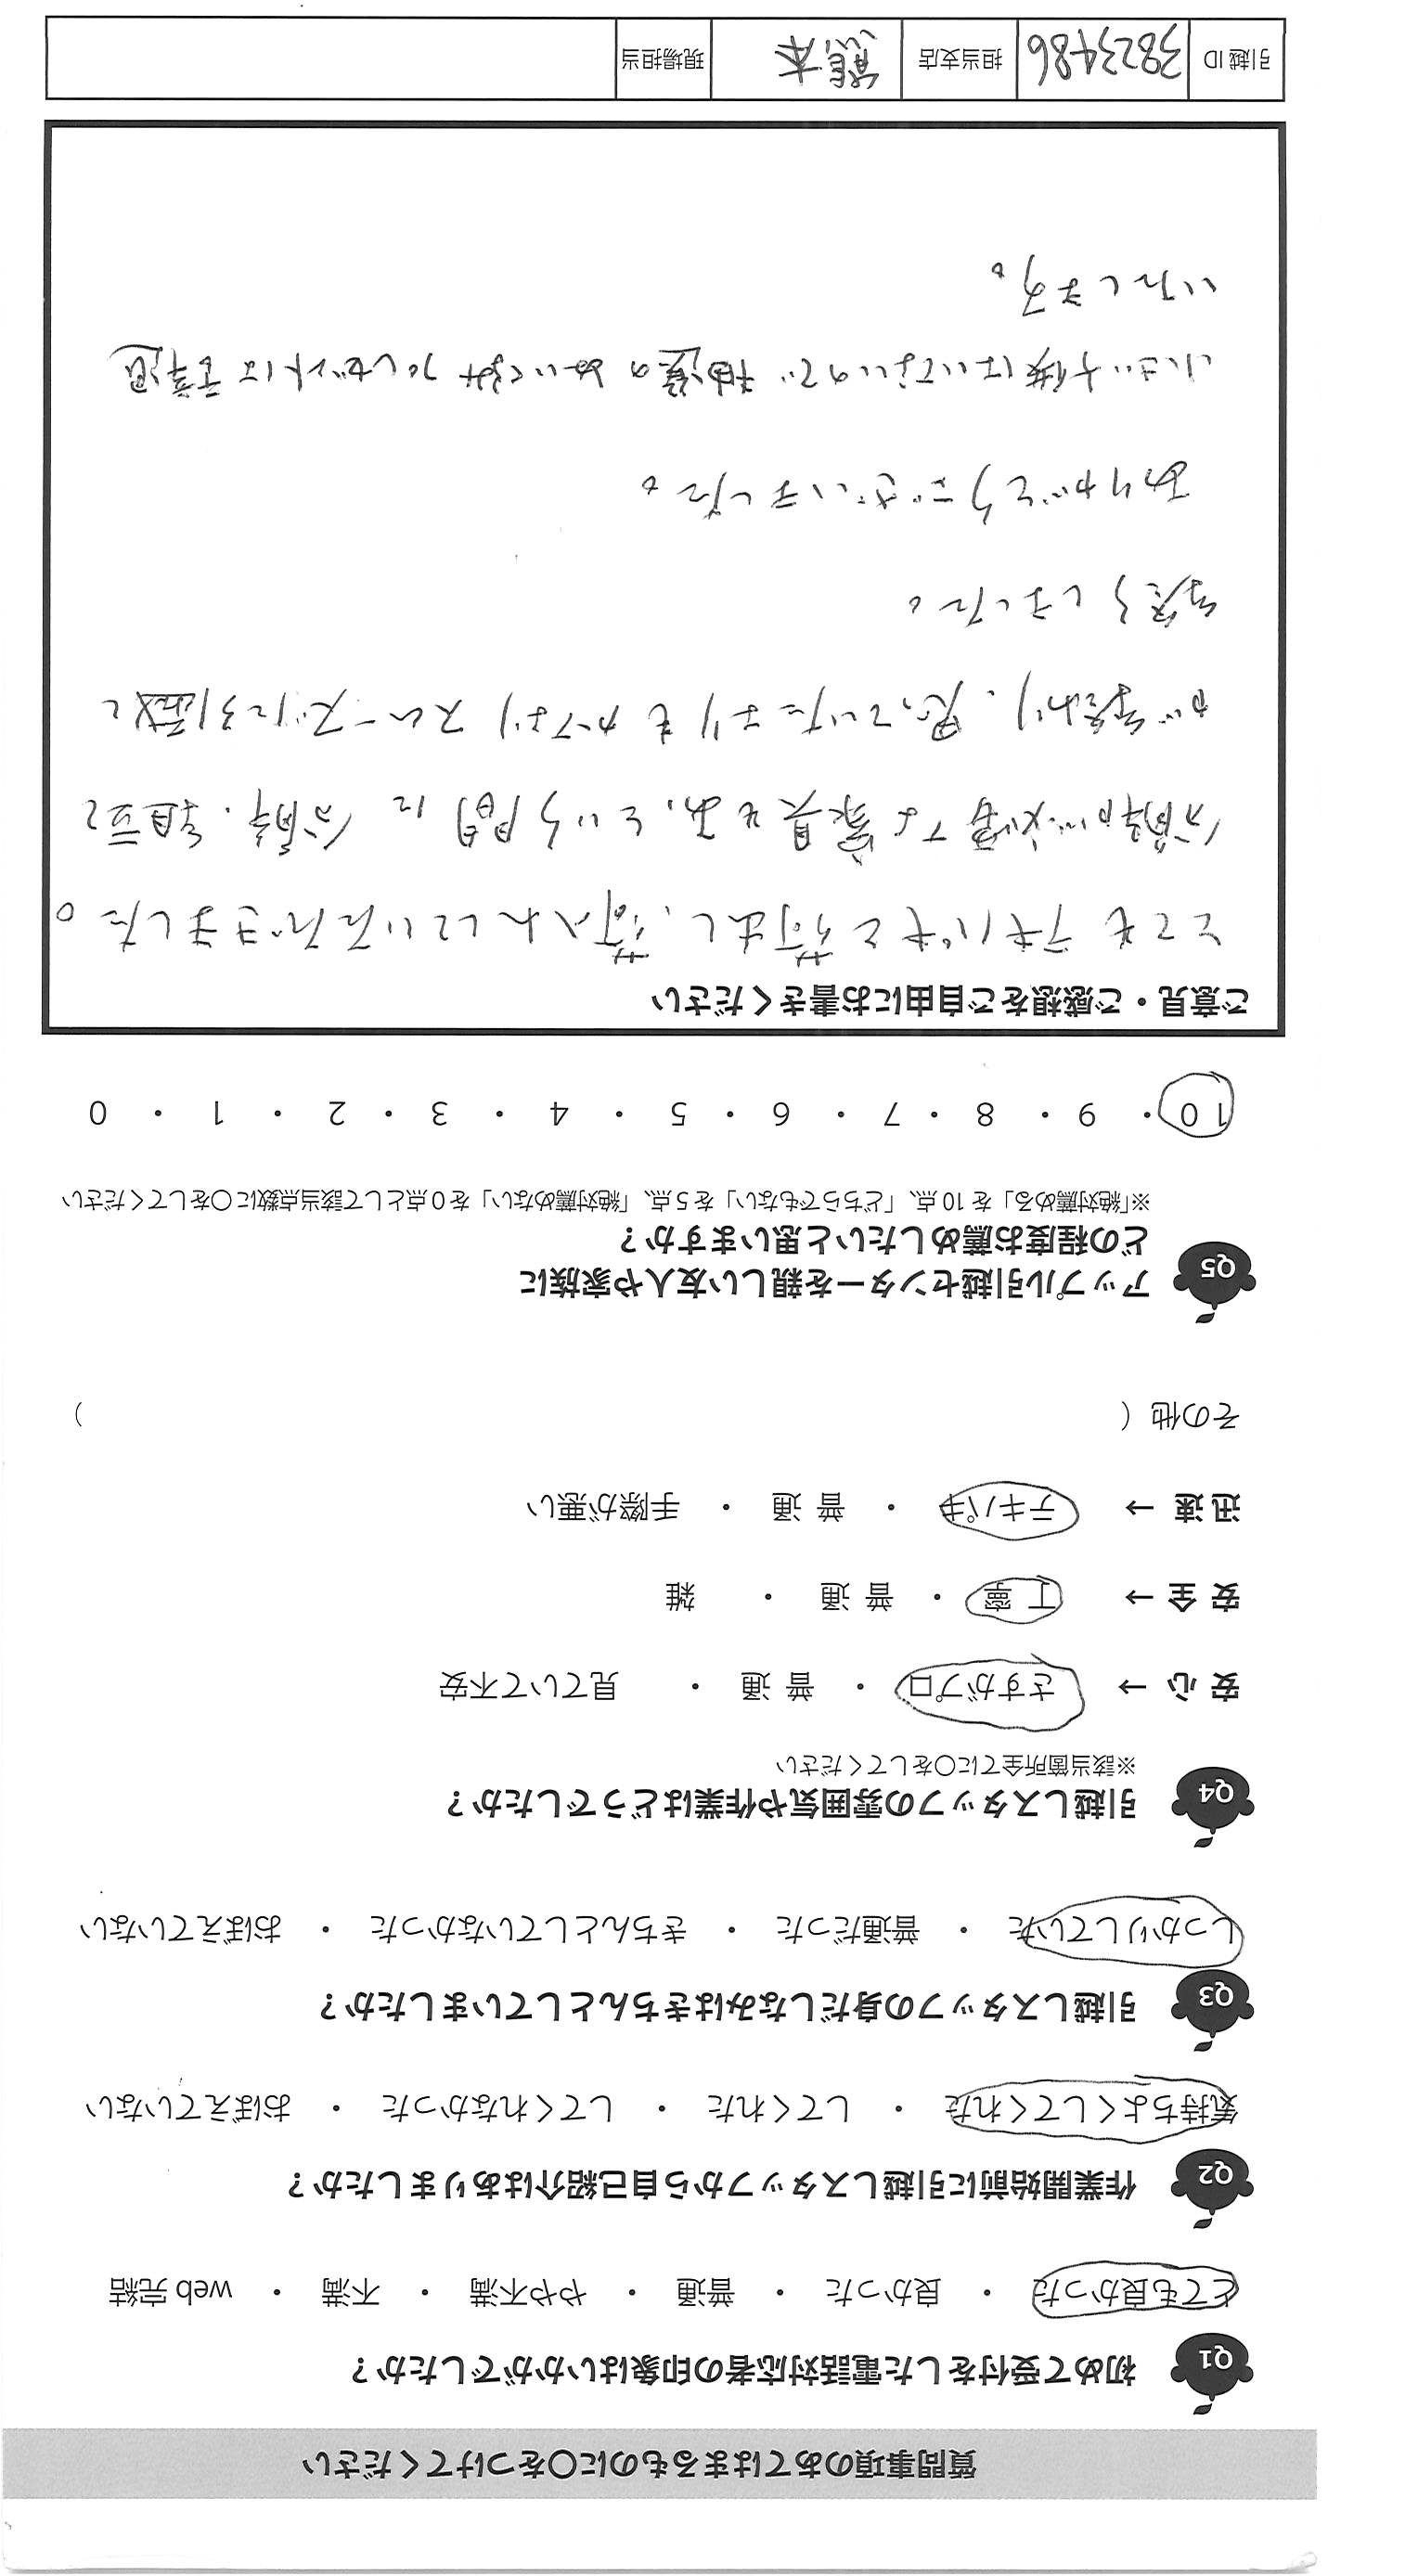 質問事項のあてはまるものに〇をつけてください
Q1 初めて受付をした電話対応者の印象はいかがでしたか？
とても良かった ・ 良かった ・ 普通 ・ やや不満 ・ 不満 ・ web 完結
Q2 作業開始前に引越しスタッフから自己紹介はありましたか？
気持ちよくしてくれた ・ してくれた ・ してくれなかった ・ おぼえていない
Q3 引越しスタッフの身だしなみはきちんとしていましたか？
しっかりしていた ・ 普通だった ・ きちんとしていなかった ・ おぼえていない
Q4 引越しスタッフの雰囲気や作業はどうでしたか？
※該当箇所全てに〇をしてください
安 心 → さすがプロ ・ 普 通 ・ 見ていて不安
安 全 → 丁 寧 ・ 普 通 ・ 雑
迅 速 → テキパキ ・ 普 通 ・ 手際が悪い
その他（ ）
Q5 アップル引越センターを親しい友人や家族に
どの程度お薦めしたいと思いますか？
※「絶対薦める」を 10 点、「どちらでもない」を 5 点、「絶対薦めない」を 0 点として該当点数に〇をしてください
10 ・ 9 ・ 8 ・ 7 ・ 6 ・ 5 ・ 4 ・ 3 ・ 2 ・ 1 ・ 0
ご意見・ご感想をご自由にお書きください
とても テキパキと荷出し、荷入れしていただきました。
分解が必要な家具もあっという間に 分解・組立て
が終わり、思っていたよりもかなりスムーズに引越しを
終えらしました。
ありがとうございました。
小さい子供はいないので 抽選の ぬいぐるみ プレゼントは 辞退
いたします。
引越 ID 3823486 担当支店 熊本 現場担当